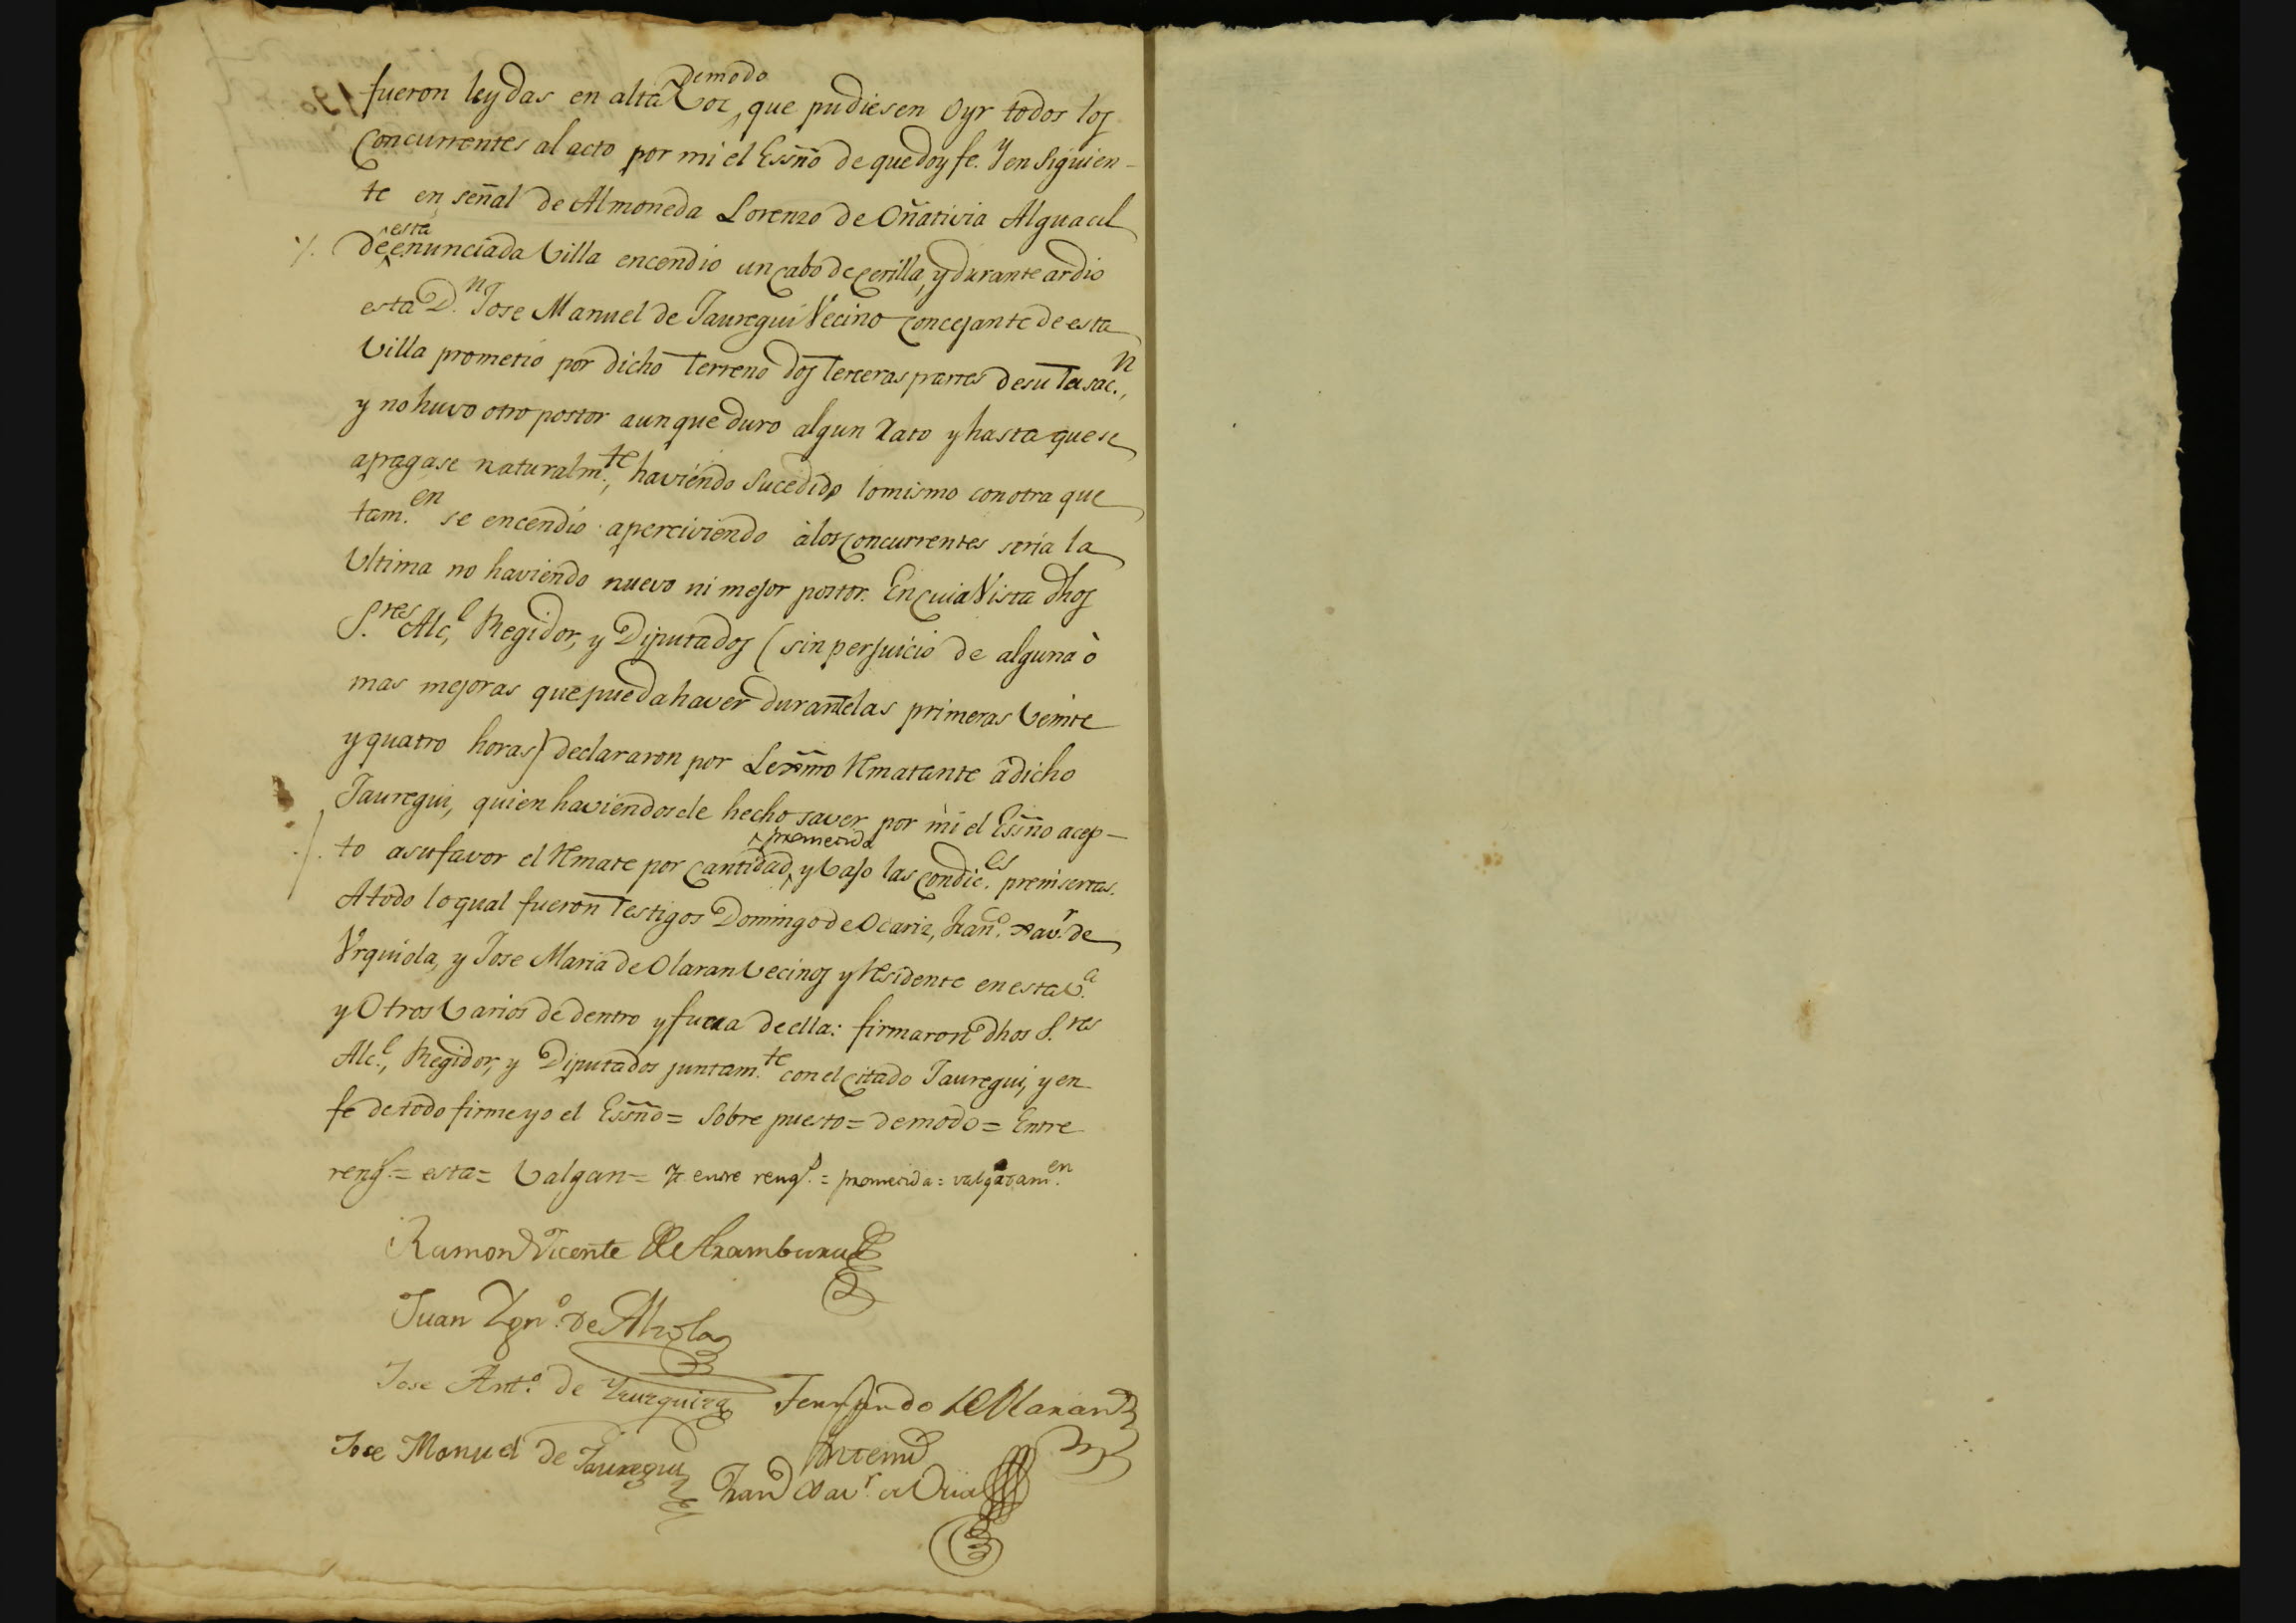 demodo
fueron leydas en alta Voz, que pudiesen Oyr todos los
Concurrentes al acto por mi el Essño de que doy fe. Y en Siguien-
te en señal de Almoneda Lorenzo de Oñativia Alguacil
esta
de enunciada Villa encendio un cabo de Cerilla, y durante ardio
esta D.n Jose Manuel de Jauregui Vecino Concejante de esta
Villa prometio por dicho Terreno dos Terceras partes de su Tasac.n,
y no huvo otro postor aunque duro algun Rato y hasta que se
apagase naturalm.te, haviendo Sucedido lo mismo con otra que
tam.en se encendio aperciviendo à los Concurrentes seria la
Ultima no haviendo nuevo ni mejor postor. En cuia Vista dhos
S.res Alc.l, Regidor, y Diputados (sin perjuicio de alguna ò
mas mejoras que pueda haver durante las primeras Veinte
y quatro horas) declararon por Lexmo Rematante à dicho
Jauregui, quien haviendosele hecho saver por mi el Essño acep-
prometida
to a su favor el Remate por Cantidad, y bajo las Condic.es preinsertas.
A todo lo qual fueron Testigos Domingo de Ocariz, Fran.co Xav.r de
Vrquiola, y Jose Maria de Olaran Vecinos y Residente en esta V.a
y Otros Varios de dentro y fuera de ella: firmaron dhos S.res
Alc.l, Regidor, y Diputados juntam.te con el Citado Jauregui, y en
fé de todo firme yo el Essño = Sobre puesto = demodo = Entre
reng.s = esta = Valgan = Yt. entre reng.s = prometida = valga tam.en
Ramon Vicente de Aramburu
Juan Ygn.o de Alzola
Jose Ant.o de Yzurquiza Fernando de Olaran
Jose Manuel de Jauregui
Antemi
Fran.co Xav.r de Oria